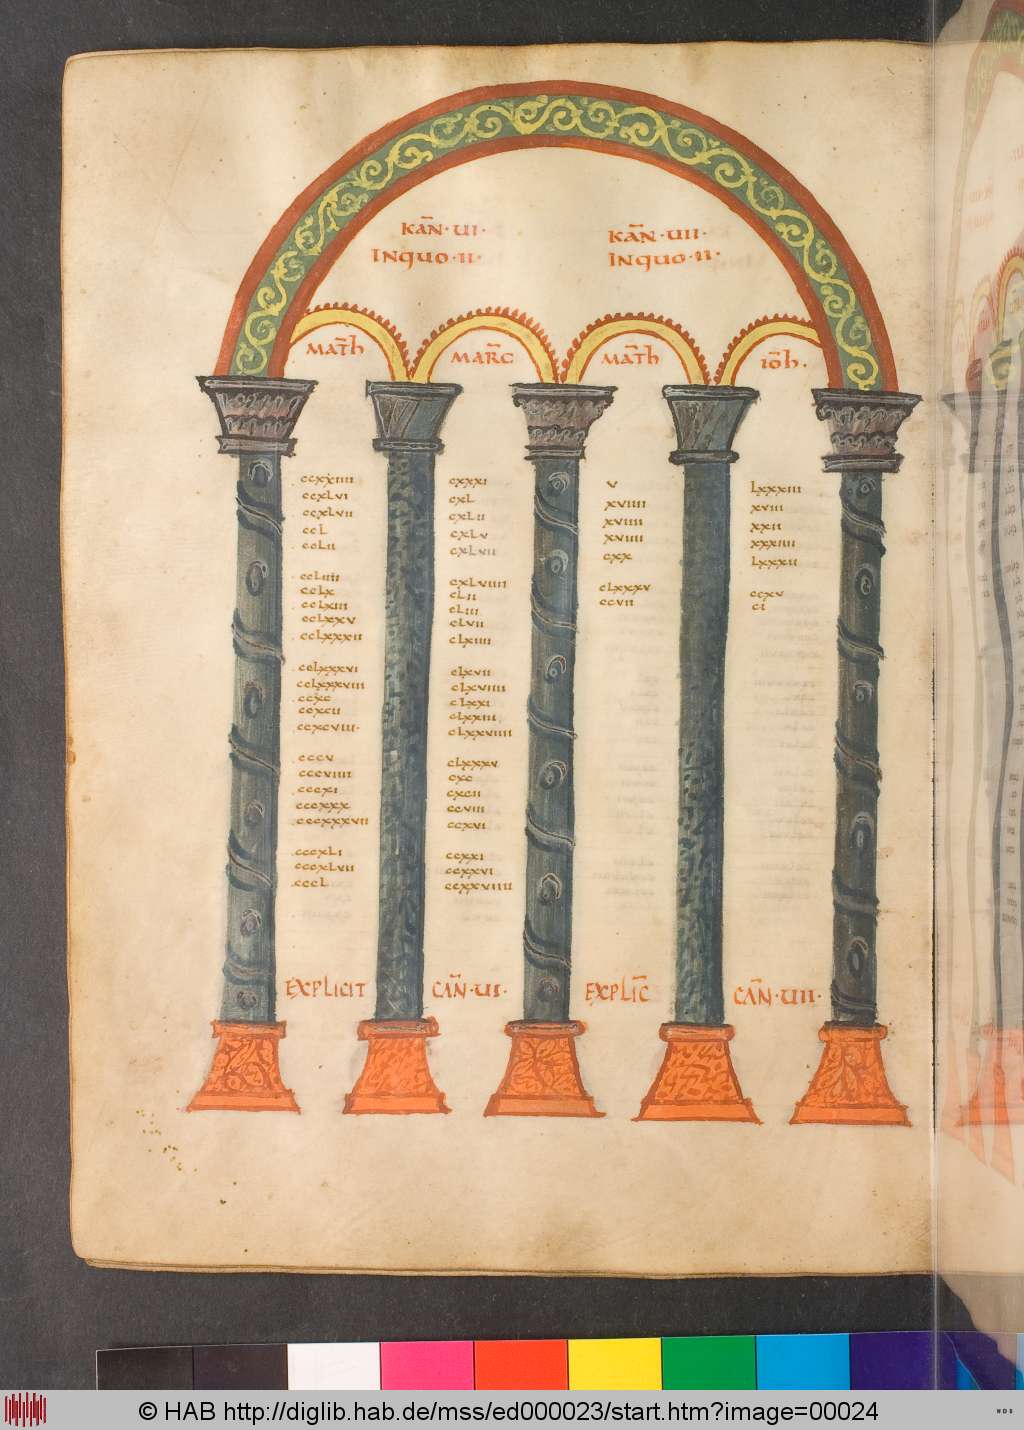 KAÑ·UI·
INQUO·II·
KAÑ·UII·
INQUO·II·
MAT̃H
MAR̃C
MAT̃H
IOH̃·
ccxxiiii
ccxLvi
ccxLvii
ccL
ccLii
ccLiiii
ccLx
ccLxiii
ccLxxv
ccLxxxii
ccLxxxvi
ccLxxxviii
ccxc
ccxcii
ccxcviii·
cccv
cccviiii
cccxi
cccxxx
cccxxxvii
cccxLi
cccxLvii
cccL
cxxxi
cxL
cxLii
cxLv
cxLvii
cxLviiii
cLii
cLiii
cLvii
cLxiiii
cLxvii
cLxviiii
cLxxi
cLxxiii
cLxxviiii
cLxxxv
cxc
cxcii
ccviii
ccxvi
ccxxi
ccxxvi
ccxxviiii
v
xviiii
xviiii
xviiii
cxx
cLxxxv
ccvii
Lxxxiii
xviii
xxii
xxxiiii
Lxxxii
ccxv
ci
EXPLICIT
CAÑ·UI·
EXPLIC̃
CAÑ·UII·
© HAB http://diglib.hab.de/mss/ed000023/start.htm?image=00024
WDB